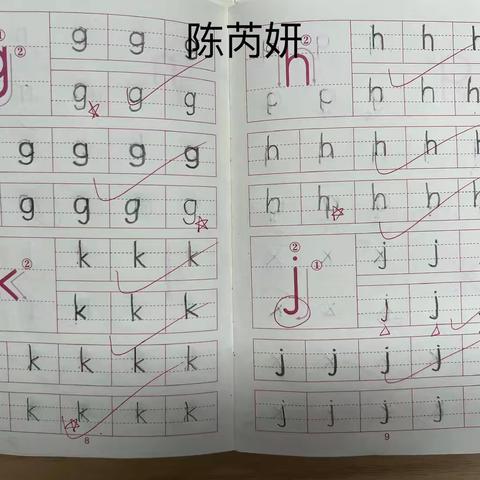 陈芮妍
g ① ② g g g
g g g
g g g g g
g g g g
k ② k k k
k k k
k k k k
k k k k
8
h ② h h h
h h h
h h h h h
h h h h h
j ② ① j j
j j
j j j j
j j j j
9